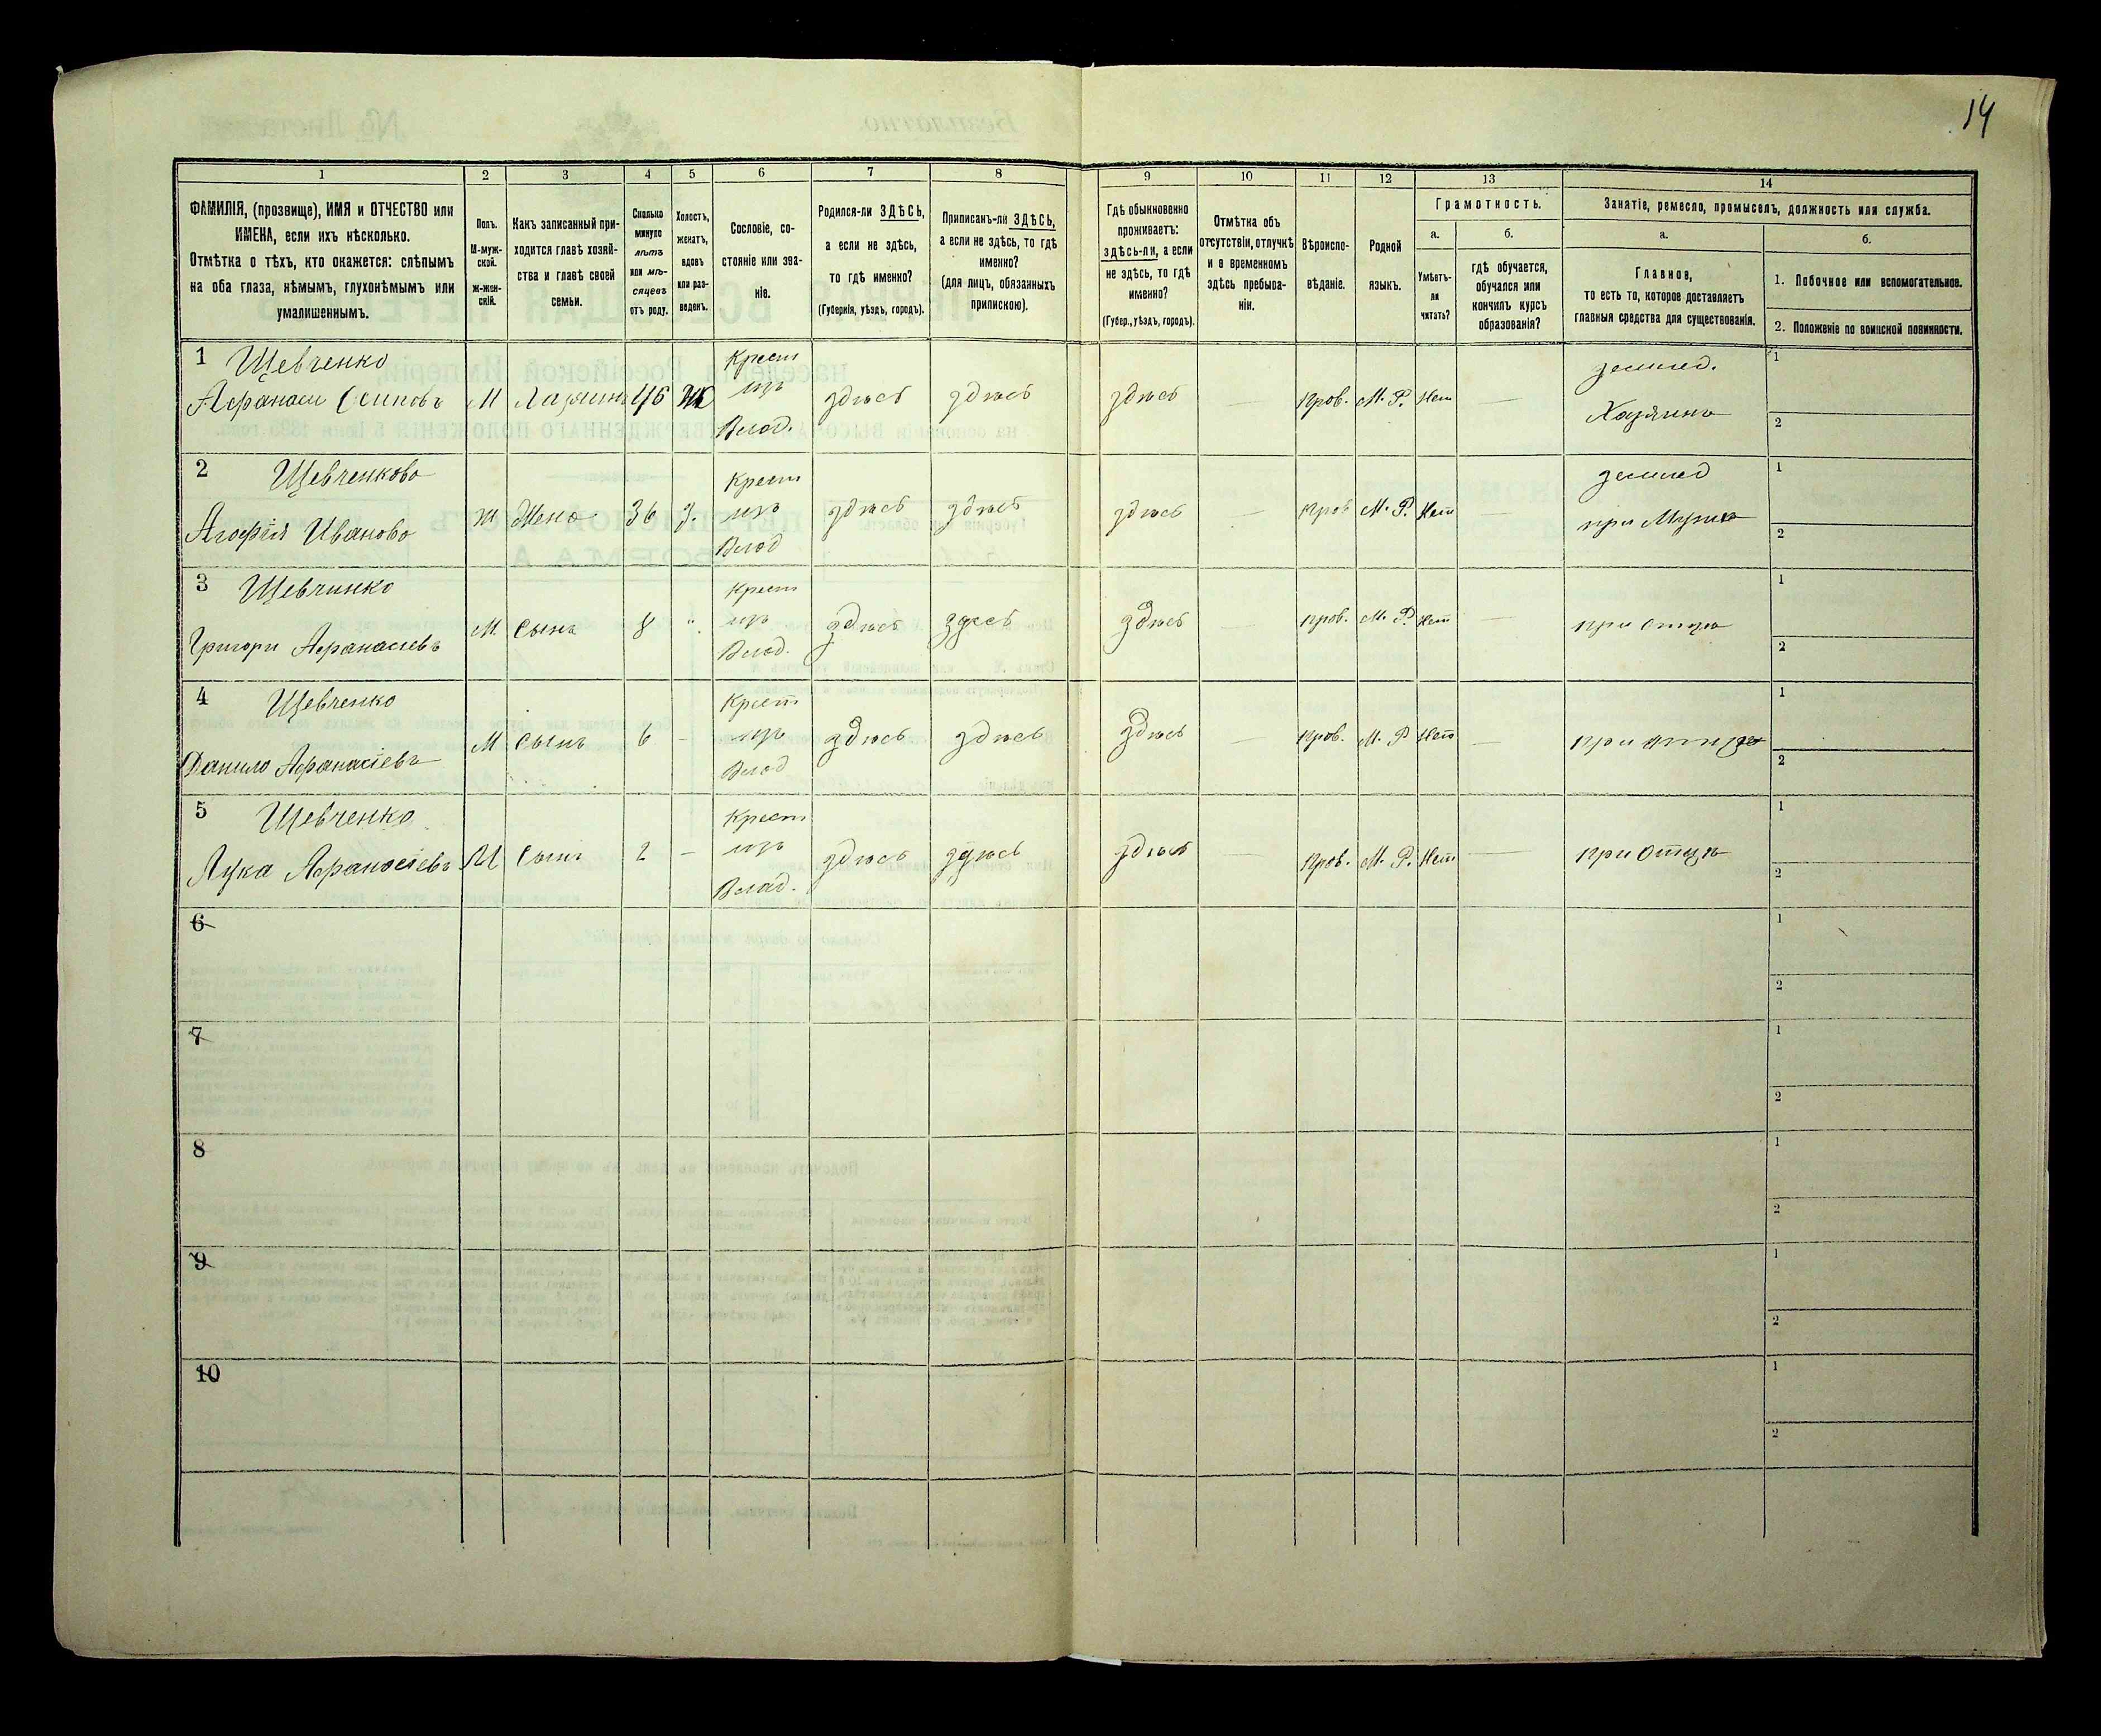 14
1 2 3 4 5 6 7 8 9 10 11 12 13 14
ФАМИЛІЯ, (прозвище), ИМЯ и ОТЧЕСТВО или
ИМЕНА, если ихъ нѣсколько.
Отмѣтка о тѣхъ, кто окажется: слѣпымъ
на оба глаза, нѣмымъ, глухонѣмымъ или
умалишеннымъ.
Полъ.
М-муж-
ской.
ж-жен-
скій.
Какъ записанный при-
ходится главѣ хозяй-
ства и главѣ своей
семьи.
Сколько
минуло
лѣтъ
или мѣ-
сяцевъ
отъ роду.
Холостъ,
женатъ,
вдовъ
или раз-
веденъ.
Сословіе, со-
стояніе или зва-
ніе.
Родился-ли ЗДѢСЬ,
а если не здѣсь,
то гдѣ именно?
(Губернія, уѣздъ, городъ).
Приписанъ-ли ЗДѢСЬ,
а если не здѣсь, то гдѣ
именно?
(для лицъ, обязанныхъ
припискою).
Гдѣ обыкновенно
проживаетъ:
здѣсь-ли, а если
не здѣсь, то гдѣ
именно?
(Губер., уѣздъ, городъ).
Отмѣтка объ
отсутствіи, отлучкѣ
и в временномъ
здѣсь пребыва-
ніи.
Вѣроиспо-
вѣданіе.
Родной
языкъ.
Грамотность.
а.
Умѣетъ-
ли
читать?
б.
гдѣ обучается,
обучался или
кончилъ курсъ
образованія?
Занятіе, ремесло, промыселъ, должность или служба.
а.
Главное,
то есть то, которое доставляетъ
главныя средства для существованія.
б.
1. Побочное или вспомогательное.
2. Положеніе по воинской повинности.
1 Щевченко
Афанаси Осиповъ М 46 Ж
Крест
изъ
Влад.
здѣсь здѣсь здѣсь — прав. М. Р. Нет —
землед.
Хазяинъ
1
2
2 Щевченкова
Агофія Иванова Ж Жена 36 З.
Крест
изъ
Влад
здѣсь здѣсь здѣсь — прав М. Р. Нет —
землед
при Мужѣ
1
2
3 Щевчинко
Григори Афанасиевъ М. Сынъ 8 "
Крест
изъ
Влад.
здѣсь здесь здѣсь — прав. М. Р. Нет —
при отцѣ
1
2
4 Щевченко
Данило Афанасіевъ М сынъ 6 —
Крест
изъ
Влад
здѣсь здѣсь здѣсь — прав. М. Р Нет —
при отцѣ
1
2
5 Щевченко
Лука Афанасіевъ М Сынъ 2 —
Крест
изъ
Влад.
здѣсь здѣсь здѣсь — прав. М. Р. Нет —
при Отцѣ
1
2
6
1
2
7
1
2
8
1
2
9
1
2
10
1
2